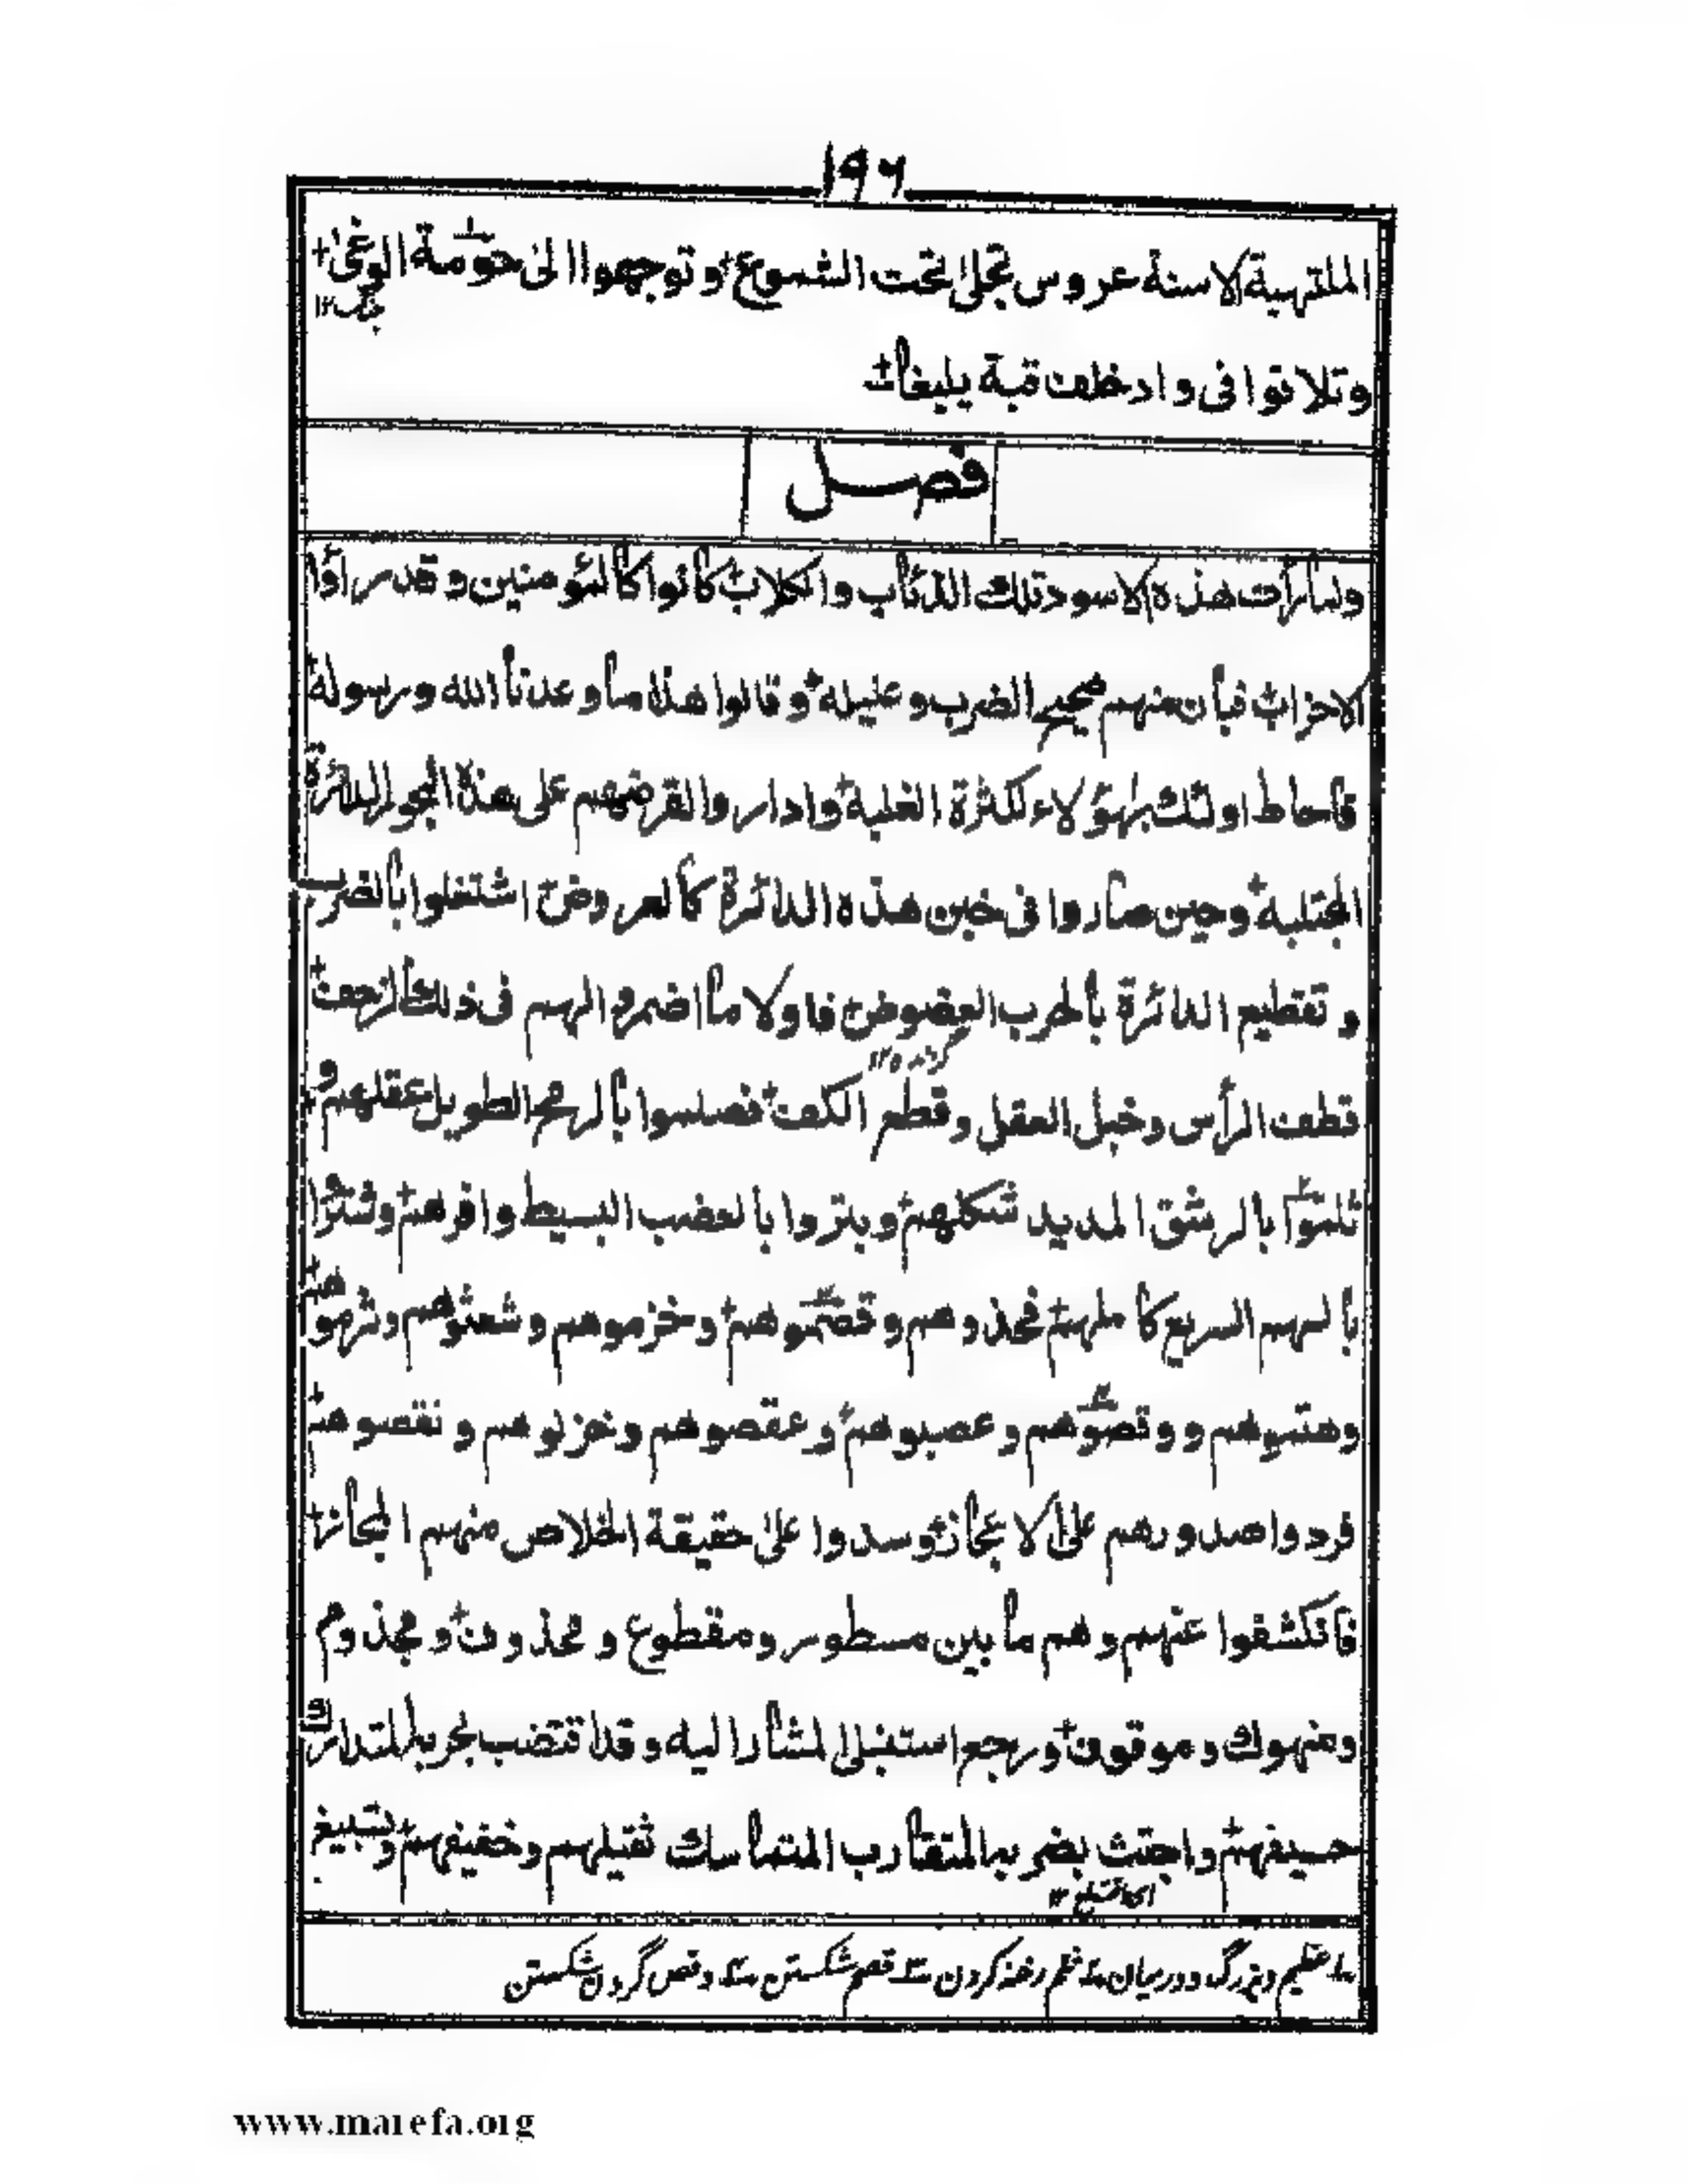 ١٩٦
الملتهبة الاسنة عروس تجلى تحت الشموع وتوجهوا الى حومة الوغى
جنگ ١٢
وتلاقوا فى واد خلف قبة يلبغا
فصل
ولما رأت هذه الاسود تلك الذئاب والكلاب كانوا كالمؤمنين وقد رأوا
الاحزاب فبان منهم صحيح الضرب وعليله وقالوا هذا ما وعدنا الله ورسوله
فاحاط اولئك بهؤلاء لكثرة الغلبة واداروا لقرضهم على هذه البحور الدائرة
المجتلبة وحين صاروا فى خبن هذه الدائرة كالعروض اشتغلوا بالضرب
وتقطيع الدائرة بالحرب العضوض فاولا ما اضمروا لهم فى ذلك الزحف
گزنده ١٢
قطف الرأس وخبل العقل وقطع الكف فصلموا بالرمح الطويل عقلهم و
ثلموا بالرشق المديد شكلهم وبتروا بالعضب البسيط وافرهم وشتروا
بالسهم السريع كاملهم فحذوهم وقصموهم وخزموهم وشعثوهم وثرموهم
وهتموهم ووقصوهم وعصبوهم وعقصوهم وخزلوهم ونقصوهم
فردوا صدورهم على الاعجاز وسدوا على حقيقة الخلاص منهم المجاز
فانكشفوا عنهم وهم ما بين مسطور ومقطوع ومحذوف ومجذوم
ومنهوك وموقوف ورجع اسنباى المشار اليه وقد اقتضب بحربه المتدارك
خسيفهم واجتث بضربه المتقارب المتماسك ثقيلهم وخفيفهم وتسبيغ
اى اقتلع ١٢
عظیم وبزرگ ودرمیان ثلم رخنه کردن قصم شکستن وقص گردن شکستن
www.marefa.org